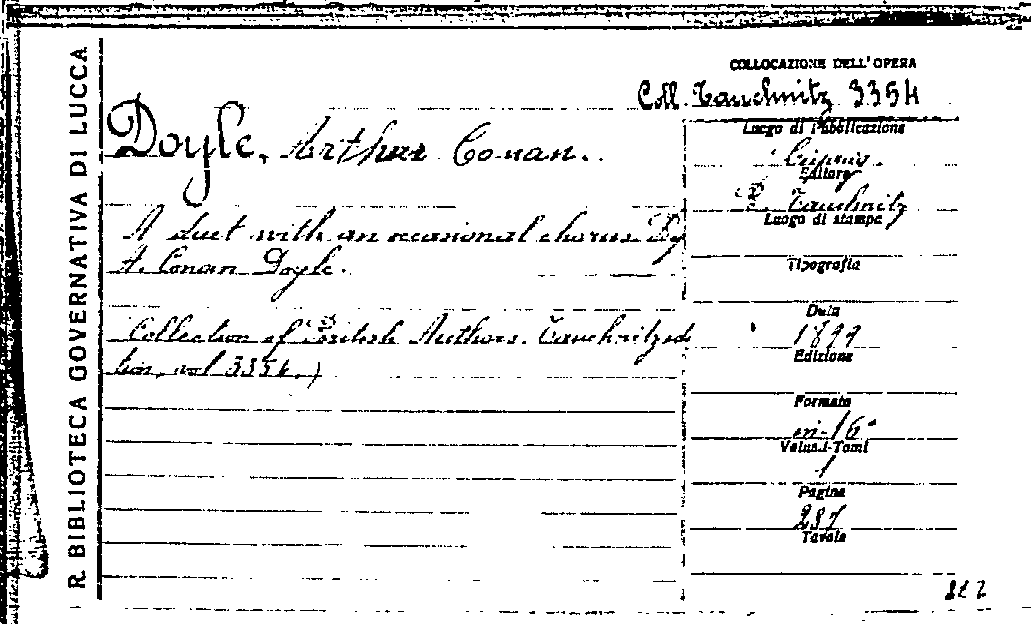 R. BIBLIOTECA GOVERNATIVA DI LUCCA
COLLOCAZIONE DELL'OPERA
Coll. Tauchnitz 3354
Doyle, Arthur Conan.
A duet with an occasional chorus By
A. Conan Doyle.
Collection of British Authors. Tauchnitz edi
tion, vol 3354.)
Luogo di Pubblicazione
Leipzig.
Editore
B. Tauchnitz
Luogo di stampa
Tipografia
Data
1899
Edizione
Formato
in-16°
Volumi-Tomi
1
Pagine
287
Tavole